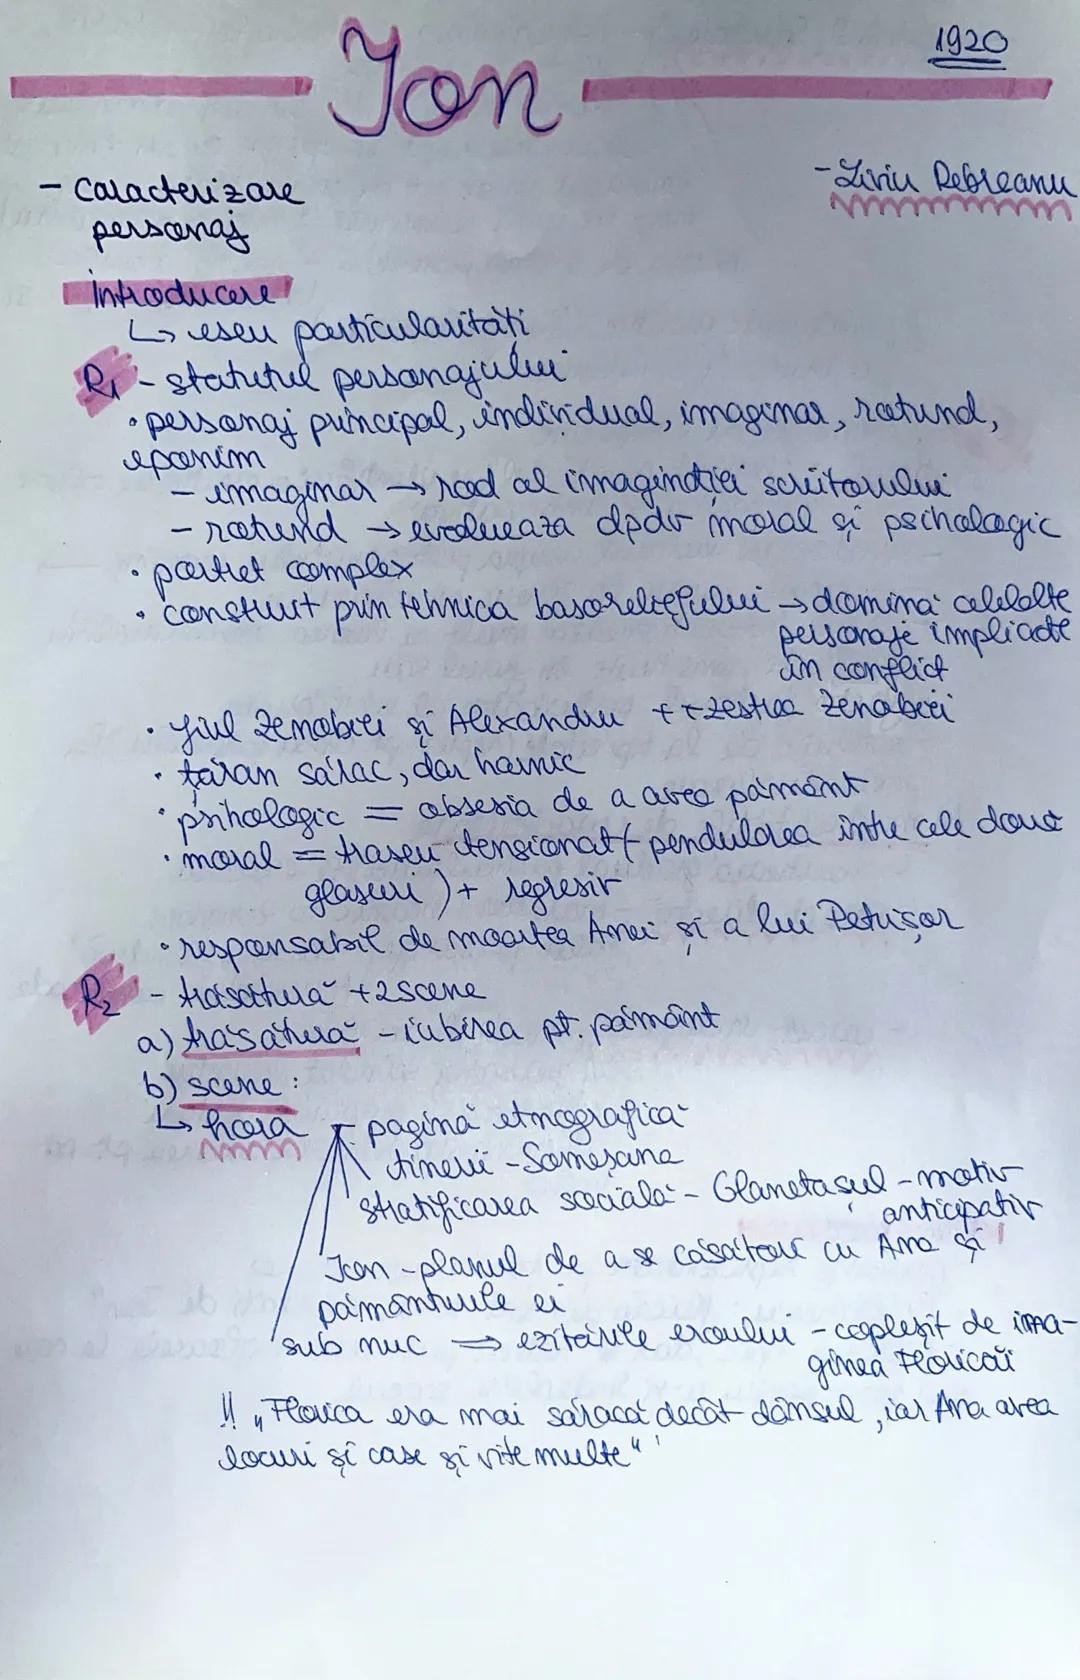 Ion
1920
- Liviu Rebreanu
- caracterizare
personaj
Introducere
↳ eseu particularitați
R1 - statutul personajului
• personaj principal, individual, imaginar, rotund,
eponim
- imaginar → rod al imaginației scriitorului
- rotund → evoluează dpdv moral și psihologic
• portret complex
• construit prin tehnica basoreliefului → domină celelalte
personaje implicate
în conflict
• fiul Zenobiei și Alexandru + zestrea Zenobiei
• țăran sărac, dar harnic
• psihologic = obsesia de a avea pământ
• moral = traseu tensionat (pendularea între cele două
glasuri) + regresiv
• responsabil de moartea Anei și a lui Petrișor
R2 - trăsătură + 2 scene
a) trăsătură - iubirea pt. pământ
b) scene :
↳ hora
pagină etnografică
tinerii - Someșana
stratificarea socială - Glanetașul - motiv
anticipativ
Ion - planul de a se căsători cu Ana și
pământurile ei
sub nuc ⇒ ezitările eroului - copleșit de ima-
ginea Floricăi
!! „Florica era mai săracă decât dânsul, iar Ana avea
locuri și case și vite multe"